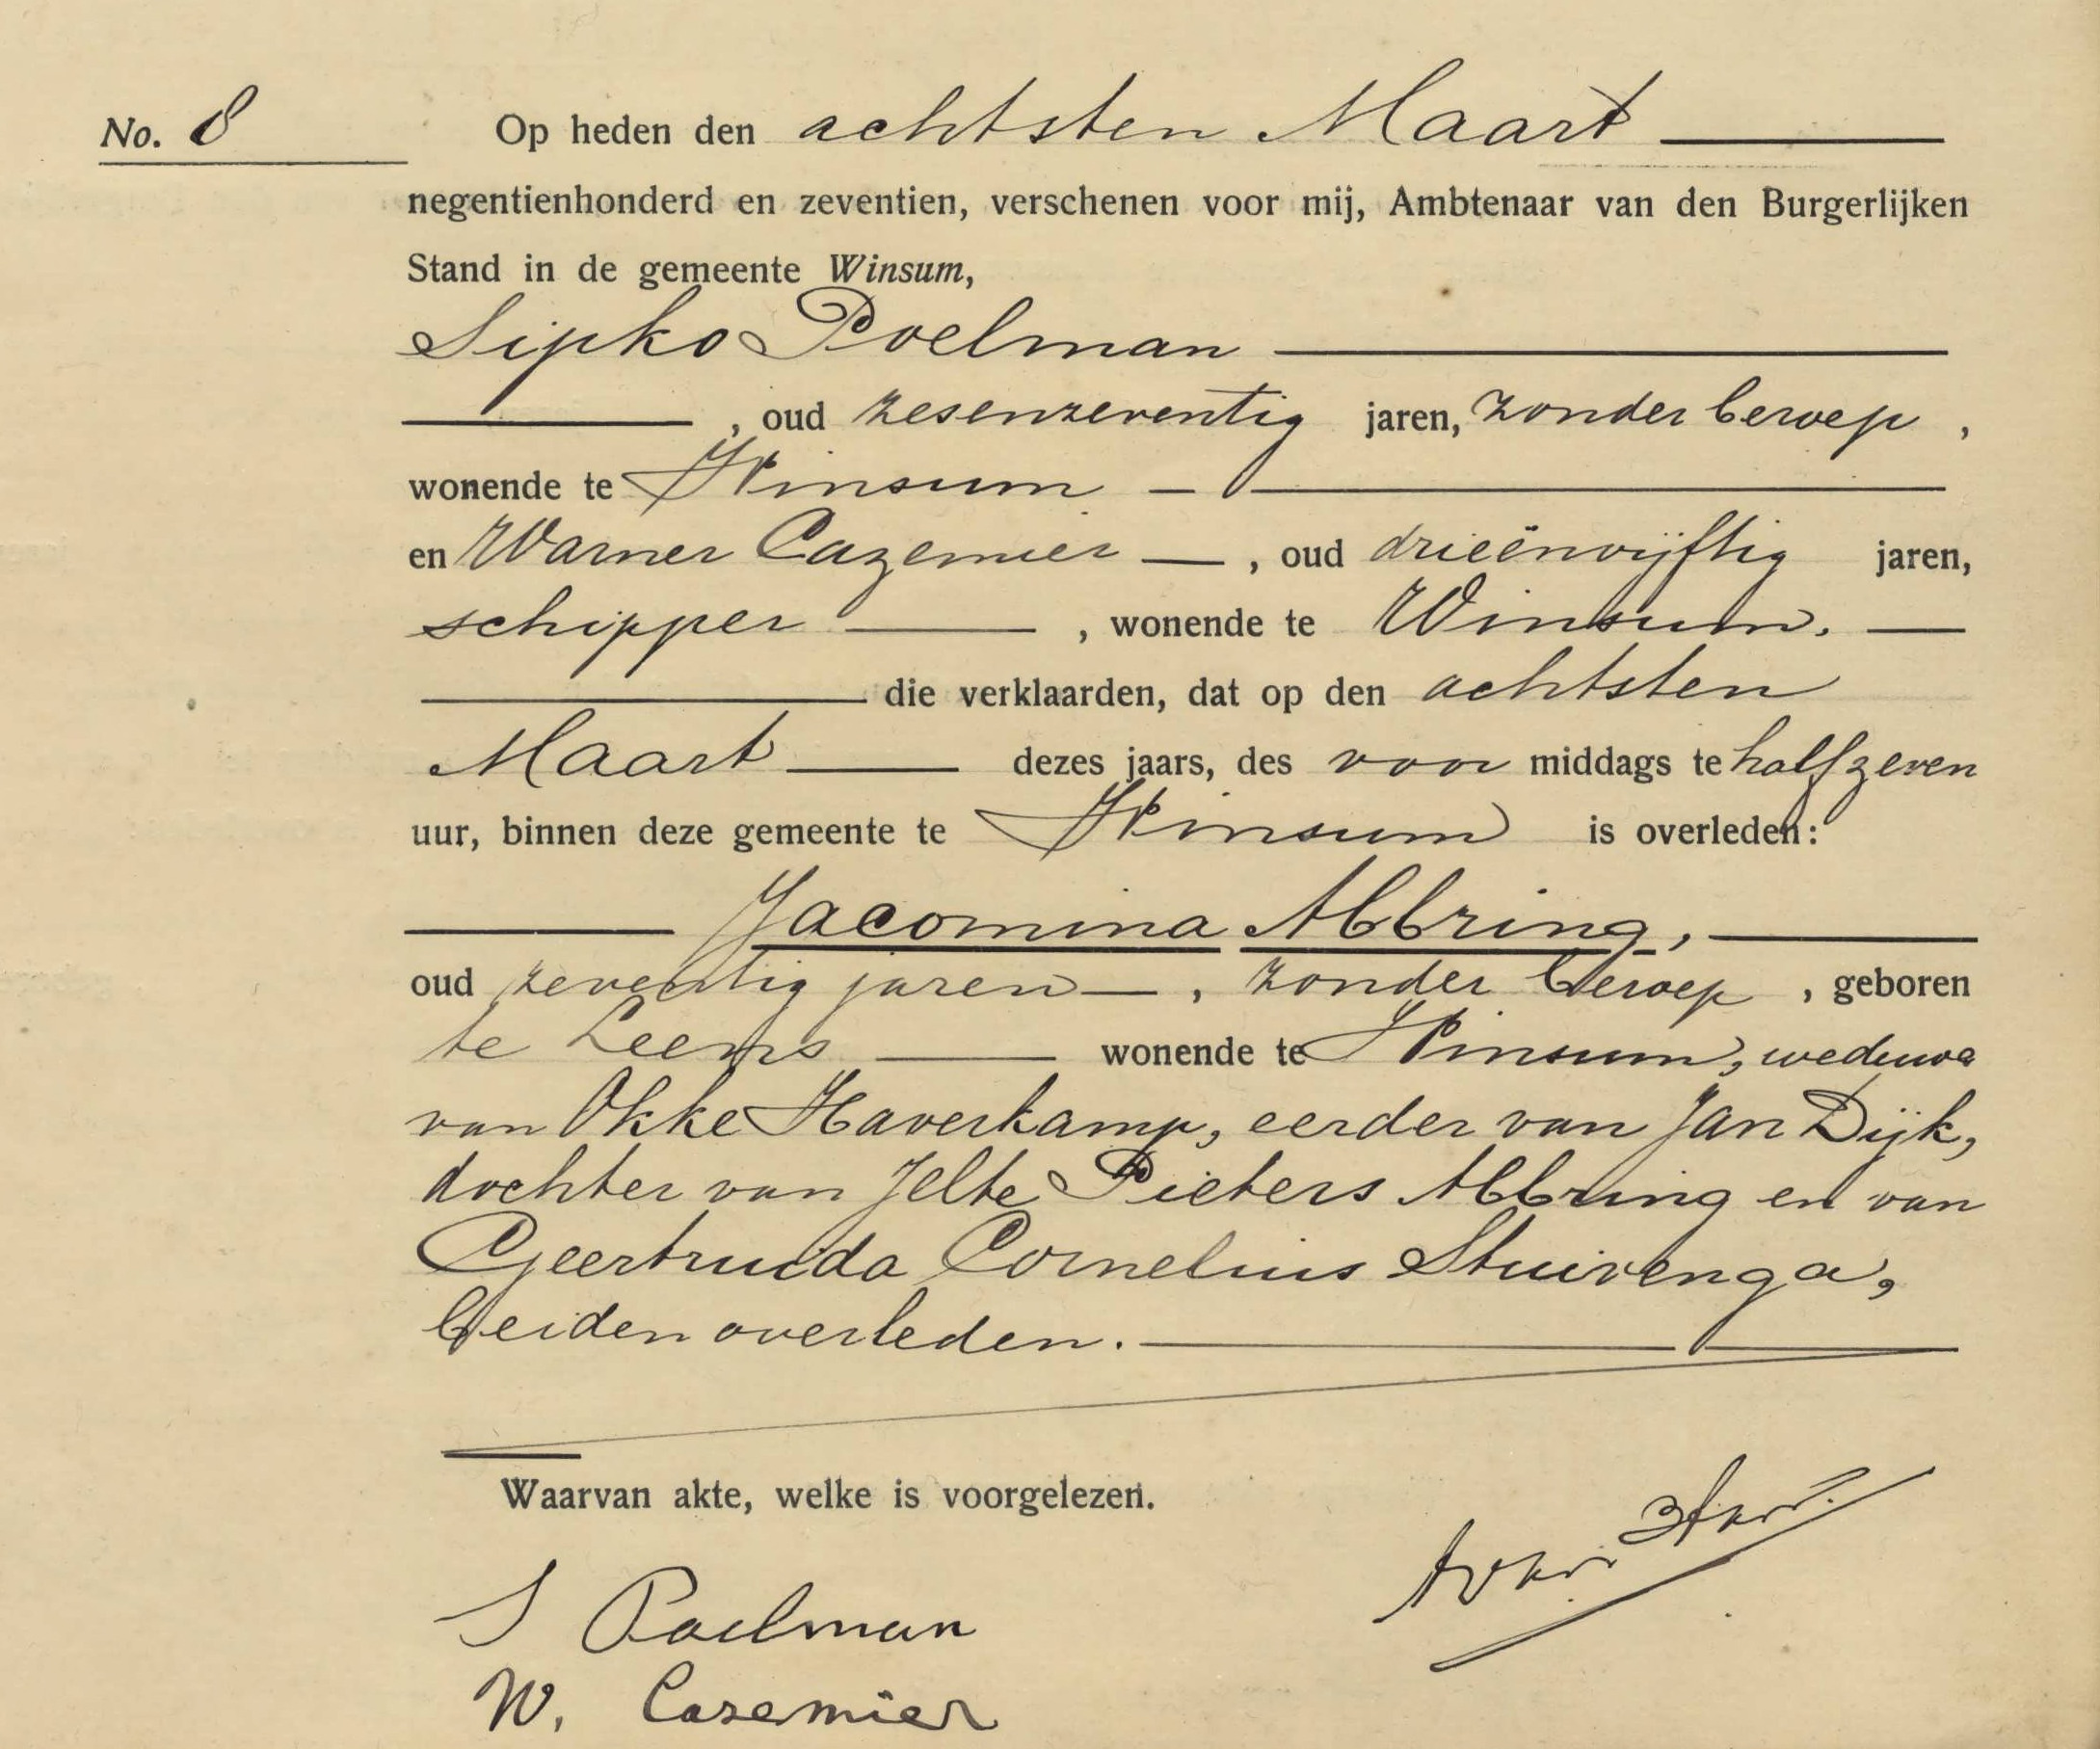 No. 8
Op heden den achtsten Maart
negentienhonderd en zeventien, verschenen voor mij, Ambtenaar van den Burgerlijken
Stand in de gemeente Winsum,
Sipko Poelman
, oud zesenzeventig jaren, zonder beroep ,
wonende te Winsum
en Warner Cazemier , oud drieënvijftig jaren,
schipper , wonende te Winsum.
die verklaarden, dat op den achtsten
Maart dezes jaars, des voor middags te halfzeven
uur, binnen deze gemeente te Winsum is overleden:
Jacomina Abbring,
oud zeventig jaren , zonder beroep , geboren
te Leens wonende te Winsum, weduwe
van Okke Haverkamp, eerder van Jan Dijk,
dochter van Jelte Pieters Abbring en van
Geertruida Cornelius Stuivenga,
beiden overleden.
Waarvan akte, welke is voorgelezen.
S Poelman
W. Casemier